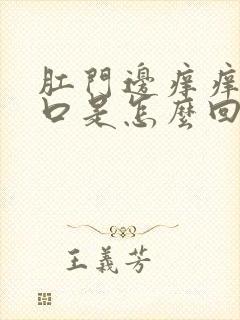 肛門邊痒痒
口是怎麼回
王義芳